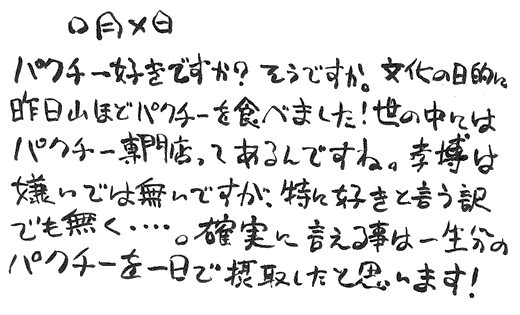 〇月×日
パクチー好きですか？そうですか。文化の日的に
昨日山ほどパクチーを食べました！世の中には
パクチー専門店ってあるんですね。孝博は
嫌いでは無いですが、特に好きと言う訳
でも無く・・・・。確実に言える事は一生分の
パクチーを一日で摂取したと思います！